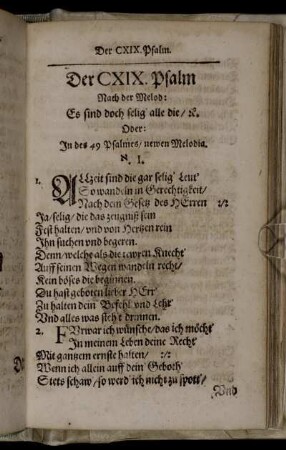 Der CXIX. Psalm.
Der CXIX. Psalm
Nach der Melod:
Es sind doch selig alle die/ ꝛc.
Oder:
In des 49 Psalmes/ newen Melodia.
א. 1.
1. ALlzeit sind die gar selig Leut
So wandeln in Gerechtigkeit/
Nach dem Gesetz des HErren :/:
Ja/ selig/ die das zeugnüß sein
Fest halten/ vnd von Hertzen rein
Ihn suchen vnd begeren.
Denn/ welche als die tewren Knecht
Auff seinen Wegen wandeln recht/
Kein böses die beginnen.
Du hast geboten lieber HErr
Zu halten dein Befehl vnd Lehr
Vnd alles was steht drinnen.
2. FVrwar ich wünsche/ das ich möcht
In meinem Leben deine Recht
Mit gantzem ernste halten/ :/:
Wenn ich allein auff dein Geboth
Stets schaw/ so werd ich nicht zu spott/
Vnd